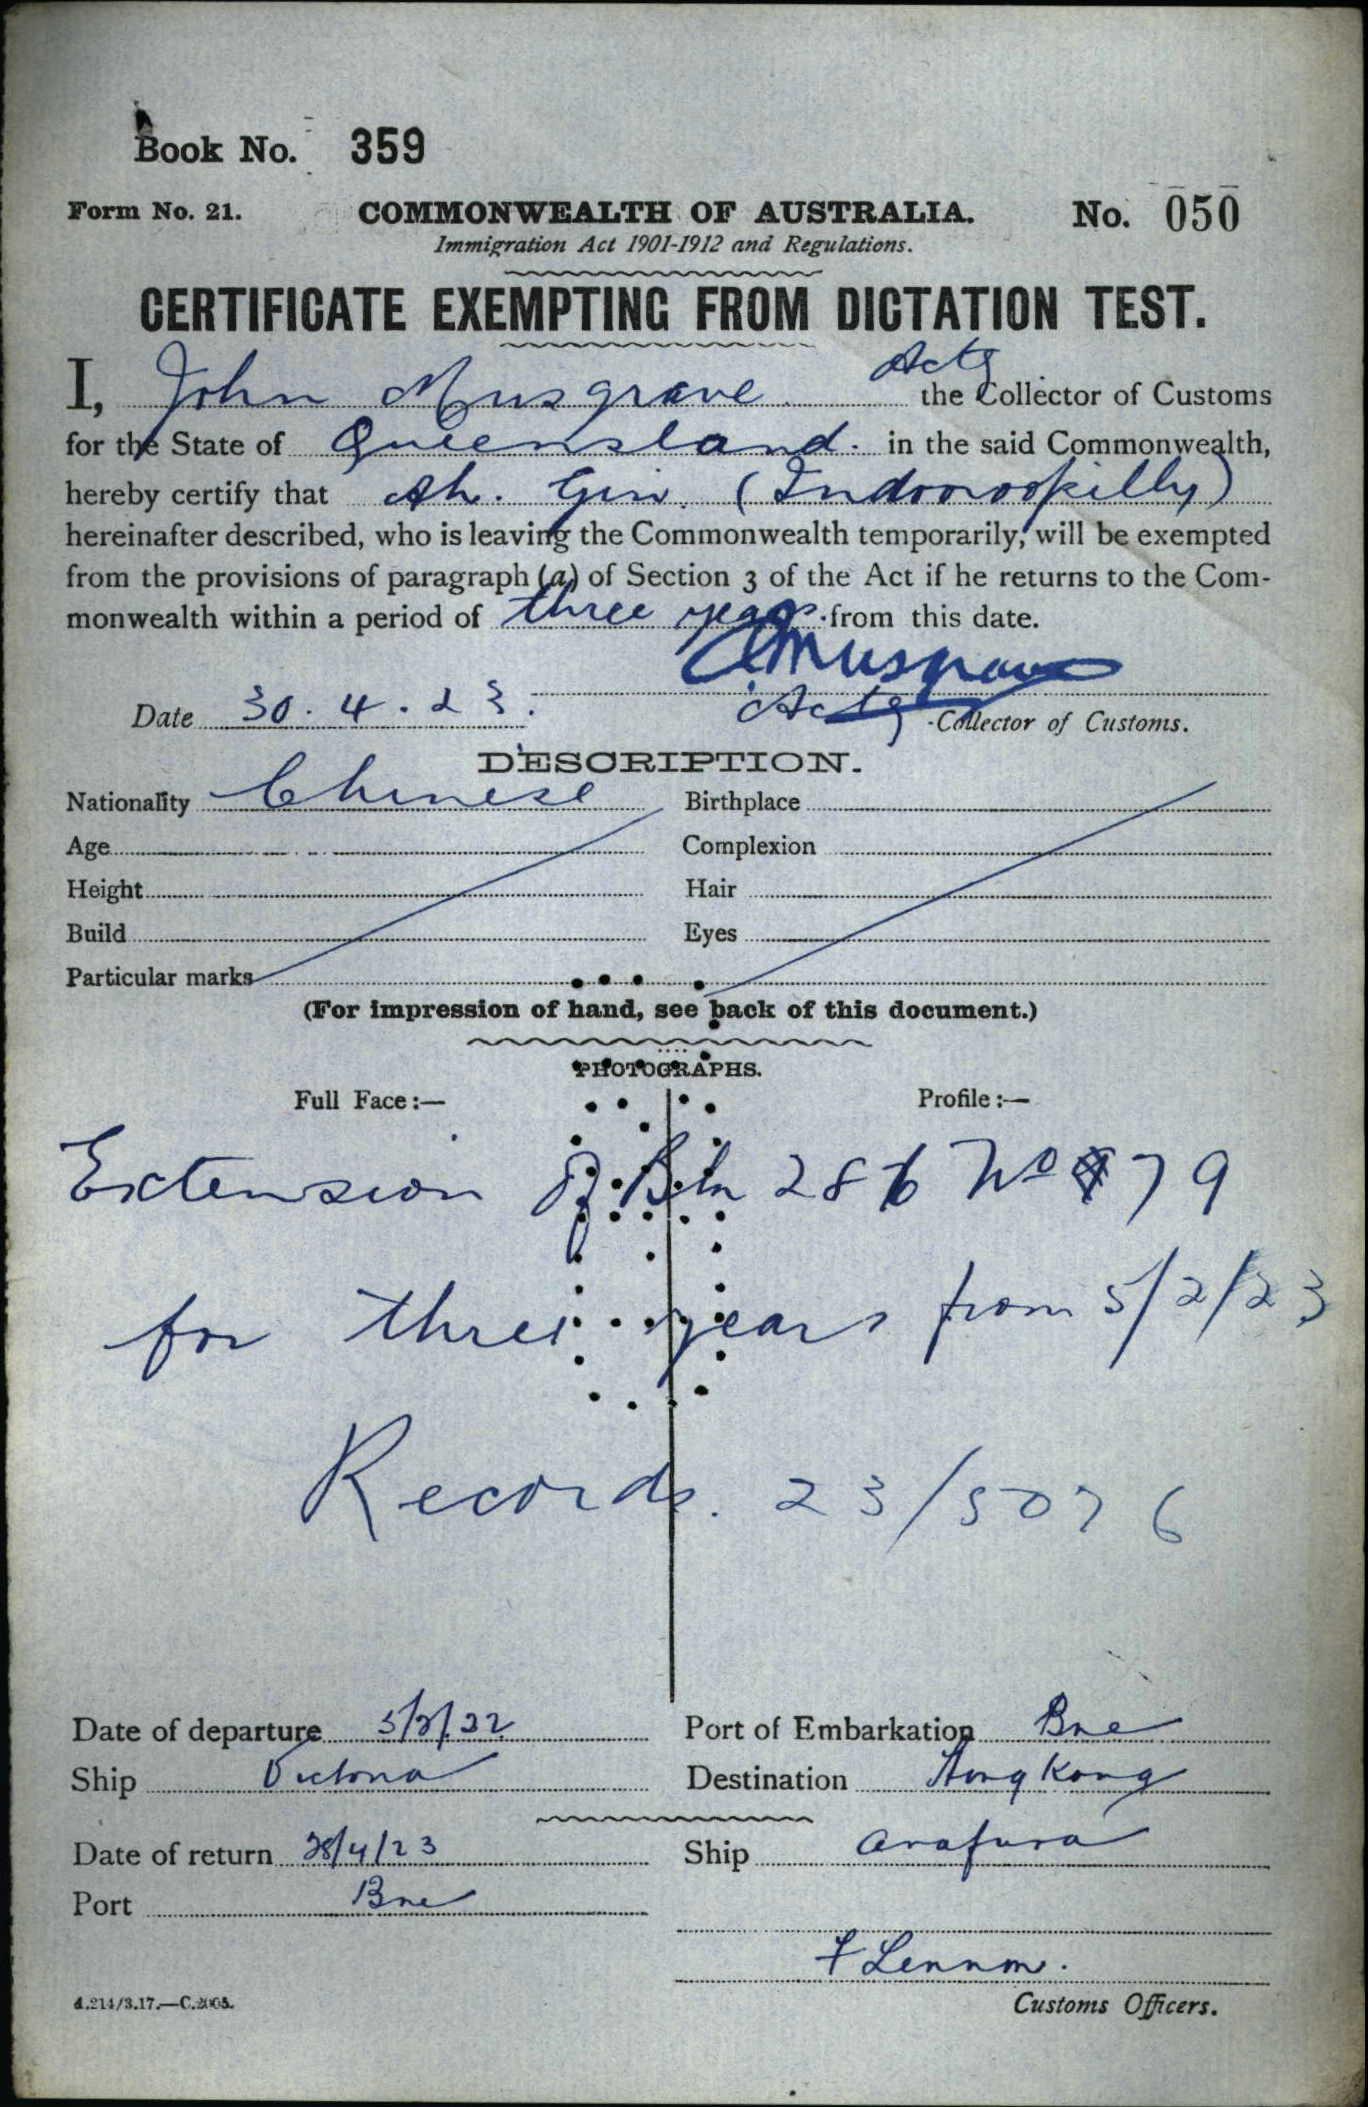 Book No. 359
Form No. 21. COMMONWEALTH OF AUSTRALIA. No. 050
Immigration Act 1901-1912 and Regulations.
CERTIFICATE EXEMPTING FROM DICTATION TEST.
Actg
I, John Musgrave the Collector of Customs
for the State of Queensland. in the said Commonwealth,
hereby certify that Ah. Gin (Indooroopilly)
hereinafter described, who is leaving the Commonwealth temporarily, will be exempted
from the provisions of paragraph (a) of Section 3 of the Act if he returns to the Com-
monwealth within a period of three years from this date.
Musgrave
Date 30.4.23. Actg Collector of Customs.
DESCRIPTION.
Nationality Chinese Birthplace
Age Complexion
Height Hair
Build Eyes
Particular marks
(For impression of hand, see back of this document.)
PHOTOGRAPHS.
Full Face:— Profile:—
Extension of Bk 286 No 79
for three years from 5/2/23
Records. 23/5076
Date of departure 5/2/22 Port of Embarkation Bne
Ship Victoria Destination Hong Kong
Date of return 28/4/23 Ship Arafura
Port Bne
F Lennon.
Customs Officers.